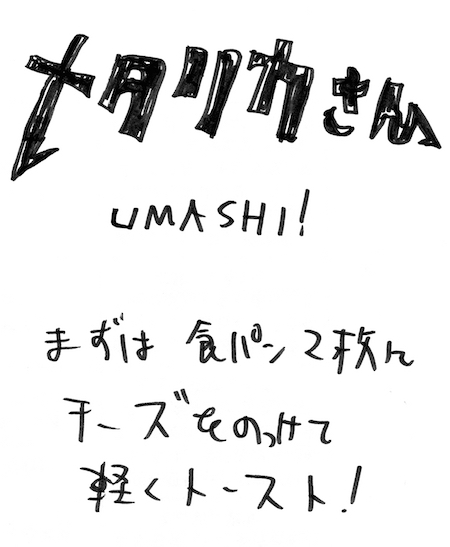 メタリカさん
UMASHI!
まずは 食パン2枚に
チーズをのっけて
軽くトースト!